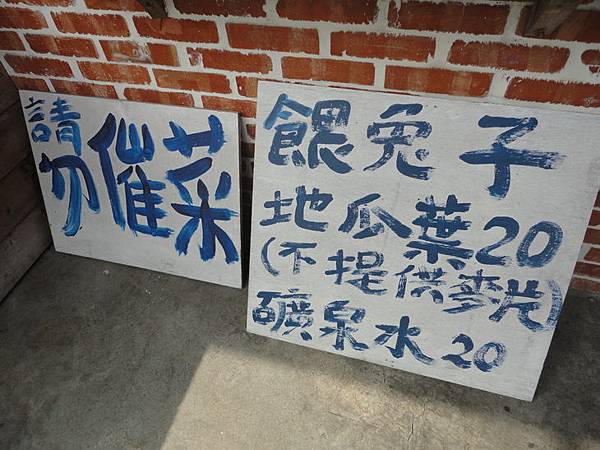 請勿催菜
餵兔子
地瓜葉20
(不提供麥片)
礦泉水20